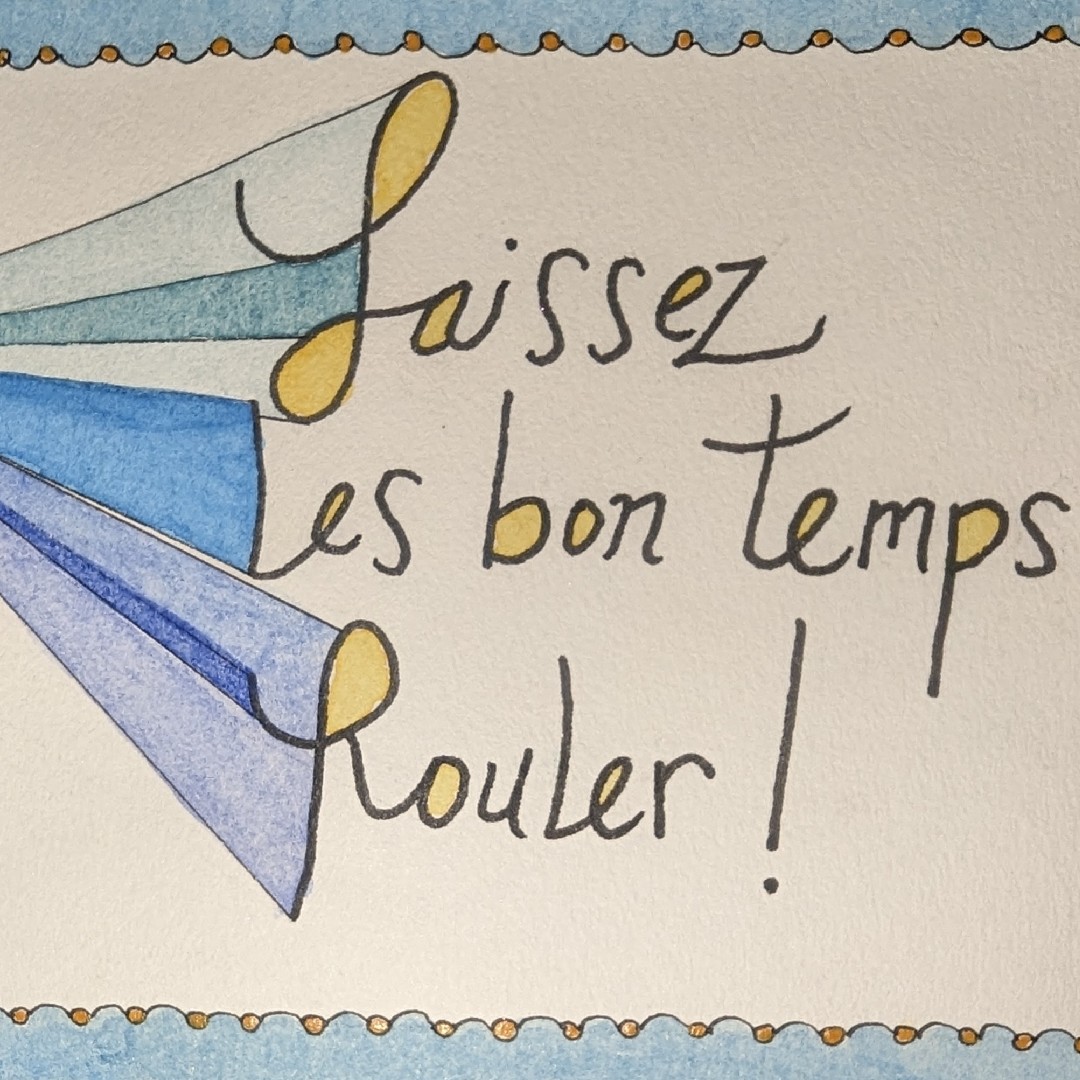 Laissez
Les bon temps
Rouler!